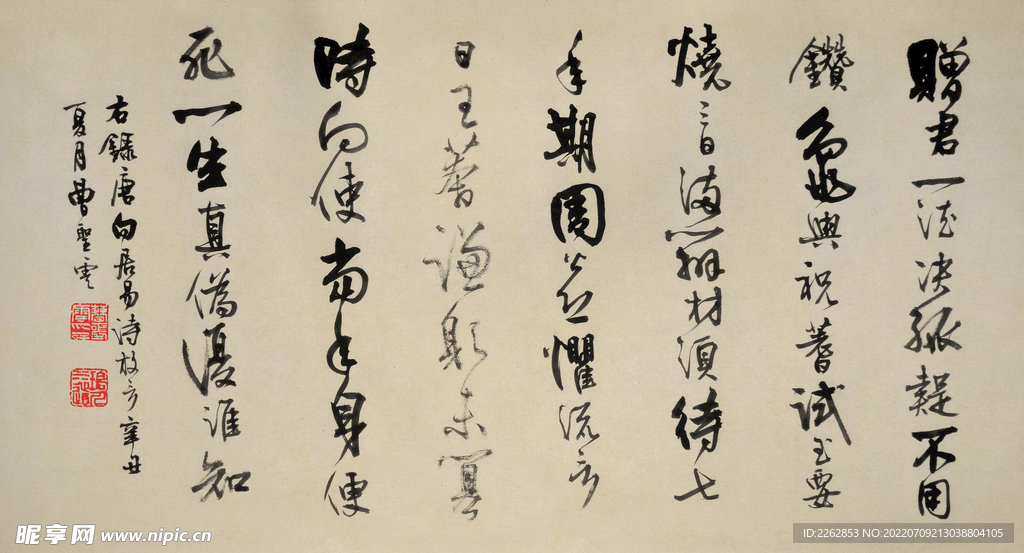 贈君一法決狐疑不用
鑽龜與祝蓍試玉要
燒三日滿辨材須待七
年期周公恐懼流言
日王莽謙躬未篡
時向使當年身便
死一生真偽復誰知
右錄唐白居易詩放言辛丑
夏月曹聖
昵享网 www.nipic.cn
ID:2262853 NO:20220709213038804105